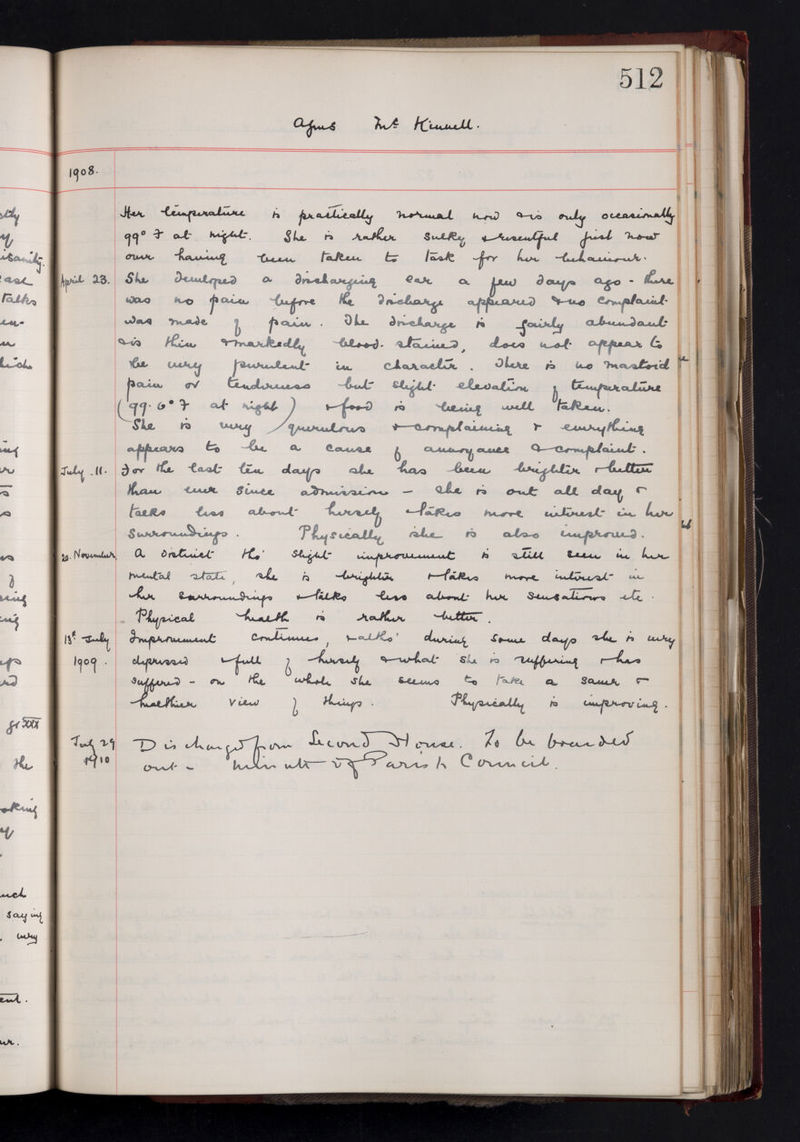 512
Agnes McKinnell.
1908.
Her temperature is practically normal now & is only occasionally
99° F at night. She is rather sulky & resentful just now
over having been taken to task for her behaviour.
April 23. She developed a discharging ear a few days ago - there
was no pain before the discharge appeared & no complaint
was made of pain. The discharge is fairly abundant
& is thin & markedly blood-stained, does not appear to
be very purulent in character. There is no mastoid
pain or tenderness but slight elevation of temperature
(99.6° F at night) & food is being well taken.
She is very querulous & complaining & everything
appears to be a cause of annoyance & complaint.
July. 11. For the last ten days she has been brighter & better
than ever since admission - she is out all day &
talks less about herself & takes more interest in her
surroundings. Physically she is also improved.
20. November A distinct tho' slight improvement is still seen in her
mental state, she is brighter & takes more interest in
her surroundings & talks less about her sensations etc.
Physical health is rather better.
13th July Improvement continues, & altho' during some days she is very
1909. depressed & full of herself & what she is suffering & has
suffered - on the whole she seems to take a saner &
healthier view of things. Physically is improving.
July 29 Discharged from Second House. To be boarded
1910 out - minute of Parish Council.
isanity.
talks
the
saying
very